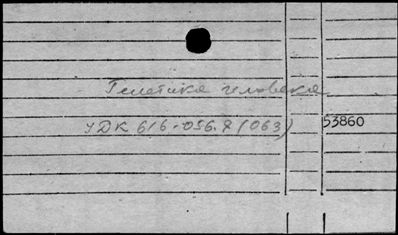 Генетика человека
УДК 616-056.7(063)
53860